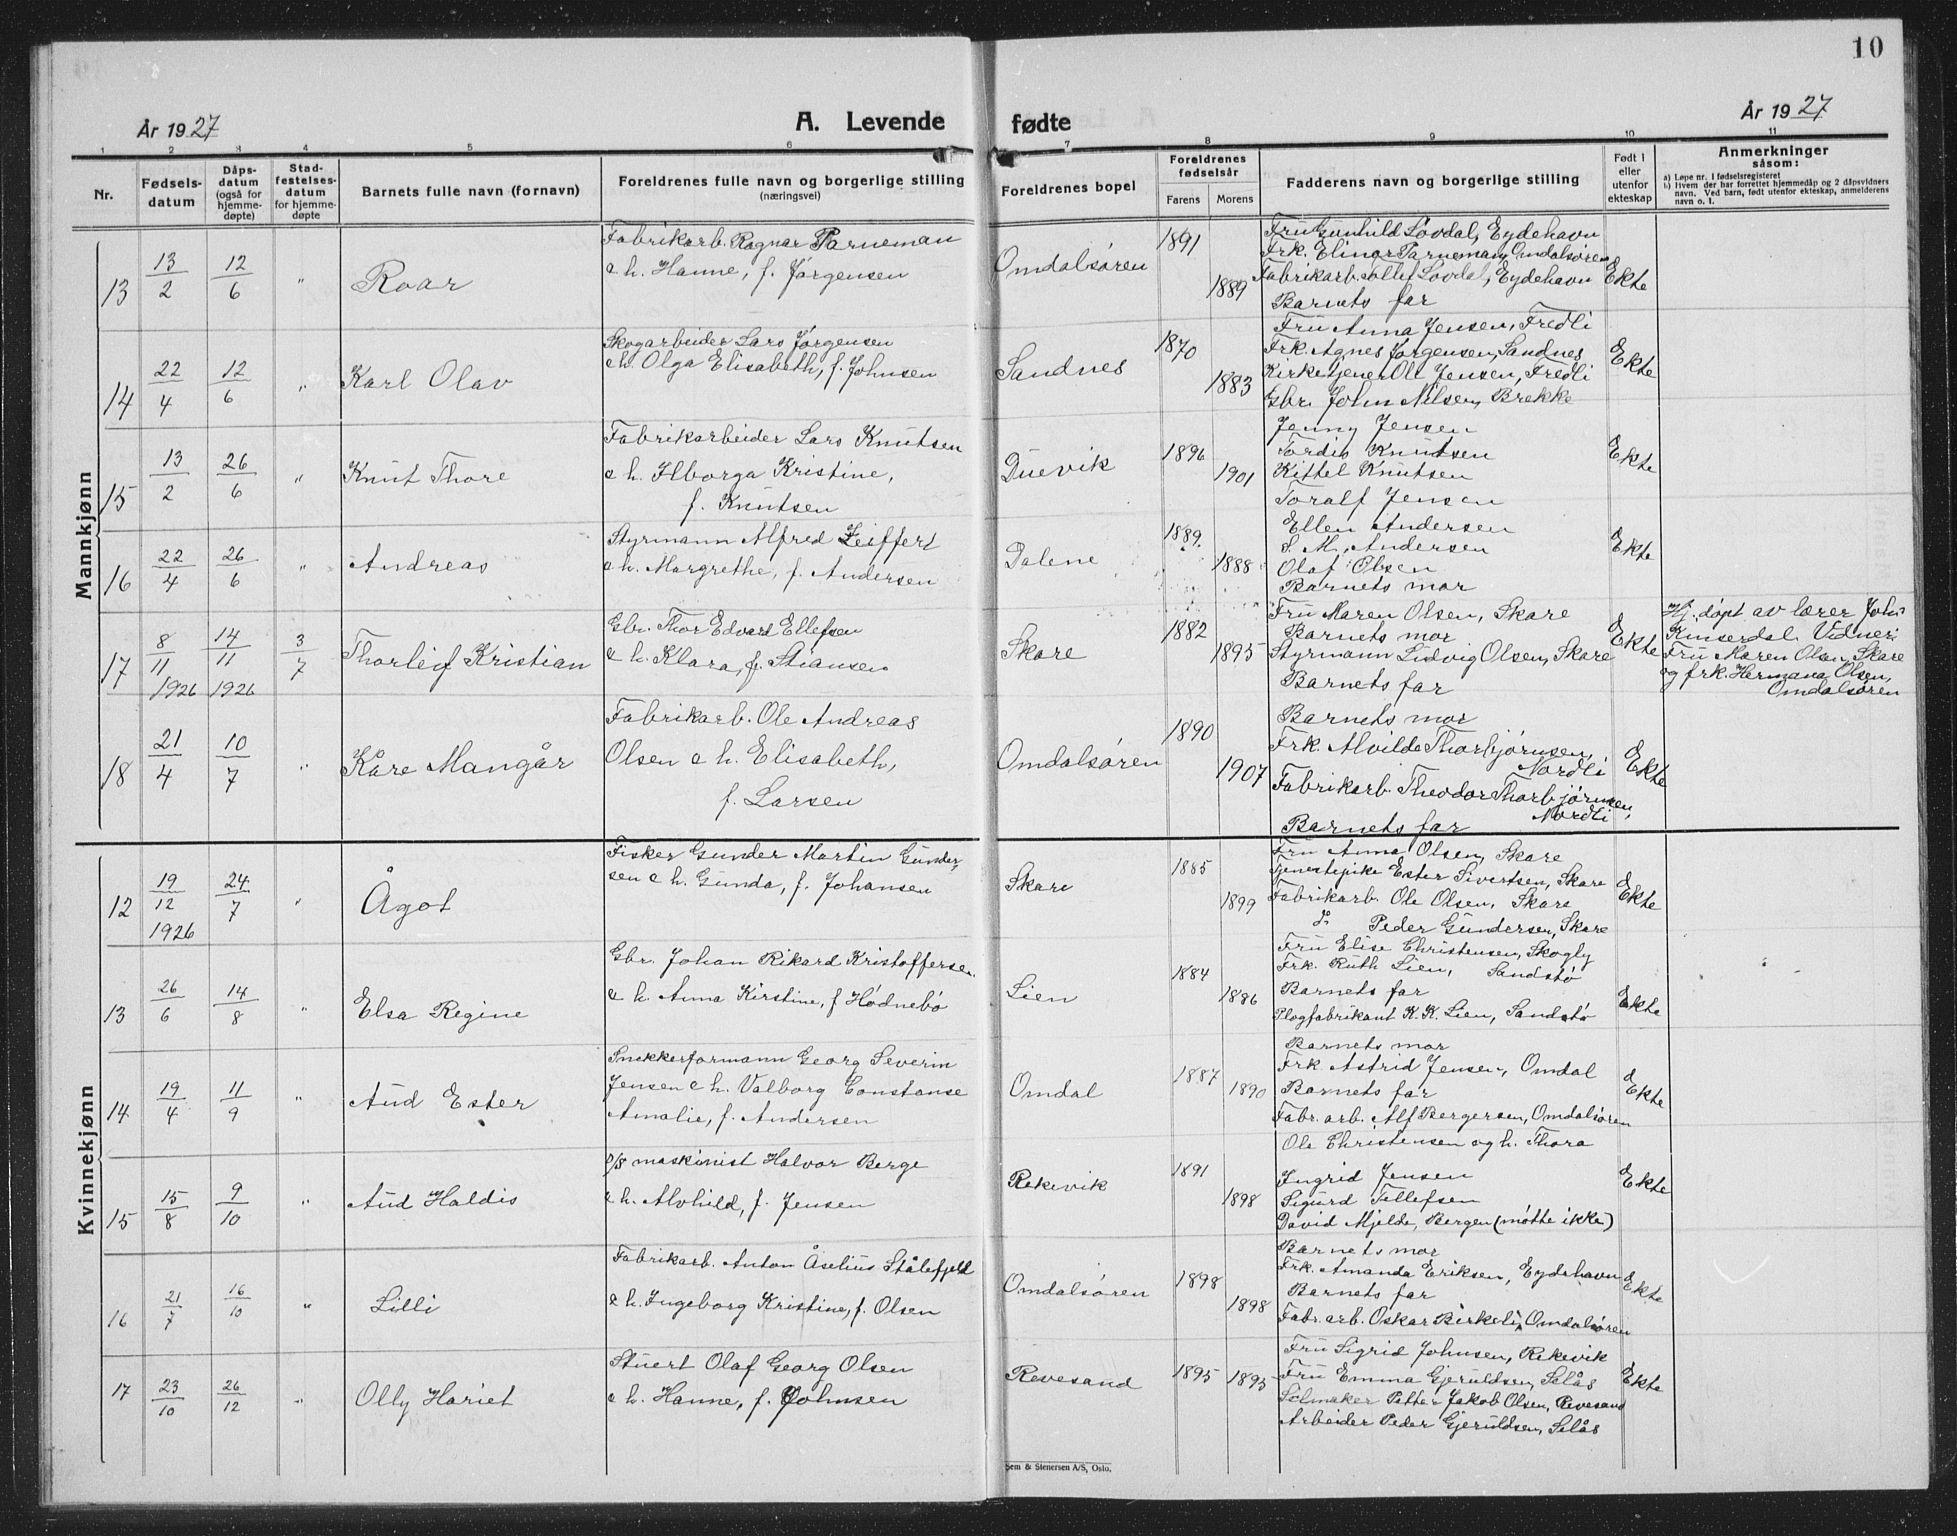 10
År 1927
A. Levende fødte
År 1927
1 2 3 4 5 6 7 8 9 10 11
Nr.
Fødsels-
datum
Dåps-
datum
(også for
hjemme-
døpte)
Stad-
festelses-
datum
for hjemme-
døpte
Barnets fulle navn (fornavn)
Foreldrenes fulle navn og borgerlige stilling
(næringsvei)
Foreldrenes bopel
Foreldrenes
fødselsår
Farens Morens
Fadderens navn og borgerlige stilling
Født i
eller
utenfor
ekteskap
Anmerkninger
såsom:
a) Løpe nr. i fødselsregisteret
b) Hvem der har forrettet hjemmedåp og 2 dåpsvidners
navn. Ved barn, født utenfor ekteskap, anmelderens
navn o. l.
Mannkjønn
13 13/2 12/6 " Roar
Fabrikarb. Ragnar Parneman
e h. Hanne, f. Jørgensen
Omdalsøren 1891 1889
Fru Gunhild Løvdal, Eydehavn
Frk. Elinor Parneman, Omdalsøren
Fabrikarb. Løvdal, Eydehavn
Barnets far
Ekte
14 22/4 12/6 " Karl Olav
Skogarbeider Lars Jørgensen
e h. Olga Elisabeth, f. Johnsen
Sandnes 1870 1883
Fru Anna Jensen, Fredli
Frk. Agnes Jørgensen, Sandnes
Kirketjener Ole Jensen, Fredli
Gbr. John Nilsen, Brekke
Ekte
15 13/2 26/6 " Knut Thore
Fabrikarbeider Lars Knutsen
e h. Ilborga Kristine,
f. Knutsen
Duevik 1896 1901
Jenny Jensen
Tordis Knutsen
Kittel Knutsen
Toralf Jensen
Ekte
16 22/4 26/6 " Andreas
Styrmann Alfred Seiffert
e h. Margrethe, f. Andersen
Dalene 1889. 1888
Ellen Andersen
S. M. Andersen
Olaf Olsen
Barnets mor
Ekte
17 8/11 1926 14/11 1926 3/7 Thorleif Kristian
Gbr. Thor Edvard Ellefsen
e h. Klara, f. Stiansen
Skare 1882 1895
Fru Maren Olsen, Skare
Barnets mor
Styrmann Ludvig Olsen, Skare
Barnets far
Ekte
Hj. døpt av lærer John
Kinserdal. Vidner:
Fru Maren Olsen, Skare
og frk. Hermana Olsen,
Omdalsøren
18 21/4 10/7 " Kåre Mangår
Fabrikarb. Ole Andreas
Olsen e h. Elisabeth,
f. Larsen
Omdalsøren 1890 1907
Barnets mor
Frk. Alvilde Thorbjørnsen,
Nordli
Fabrikarb. Theodor Thorbjørnsen,
Nordli
Barnets far
Ekte
Kvinnekjønn
12 19/12 1926 24/7 " Ågot
Fisker Gunder Martin Gunder-
sen e h. Gunda, f. Johansen
Skare 1885 1899
Fru Anna Olsen, Skare
Tjenestepike Ester Sivertsen, Skare
Fabrikarb. Ole Olsen, Skare
Peder Gundersen, Skare
Ekte
13 26/6 14/8 " Elsa Regine
Gbr. Johan Rikard Kristoffersen
e h. Anna Kirstine, f Hødnebø
Lien 1884 1886
Fru Elise Christensen, Skogly
Frk. Ruth Lien, Sandstø
Barnets far
Plogfabrikant K. K. Lien, Sandstø
Ekte
14 19/4 11/9 " Aud Ester
Snekkerformann Georg Severin
Jensen e h. Valborg Constanse
Amalie, f. Andersen
Omdal 1887 1890
Barnets mor
Frk Astrid Jensen, Omdal
Barnets far
Fabr. arb. Alf Bergersen, Omdalsøren
Ekte
15 15/8 9/10 " Aud Haldis
D/S maskinist Halvor Berge
e h. Alvhild, f. Jensen
Rekevik 1891 1898
Ole Christensen og h. Thora
Ingrid Jensen
Sigurd Tellefsen
David Mjelde, Bergen (møtte ikke)
Ekte
16 21/7 16/10 " Lilli
Fabrikarb. Anton Åselius Stålefjeld
e h. Ingeborg Kristine, f. Olsen
Omdalsøren 1898 1898
Barnets mor
Frk. Amanda Eriksen, Eydehavn
Barnets far
Fabr. arb. Oskar Birkeli, Omdalsøren
Ekte
17 23/10 26/12 " Olly Hariet
Stuert Olaf Georg Olsen
e h. Hanne, f. Johnsen
Revesand 1895 1895
Fru Sigrid Johnsen, Rekevik
Fru Emma Gjeruldsen, Selås
Seilmaker Petter Jakob Olsen, Revesand
Arbeider Peder Gjeruldsen, Selås
Ekte
Sem & Stenersen A/S, Oslo.